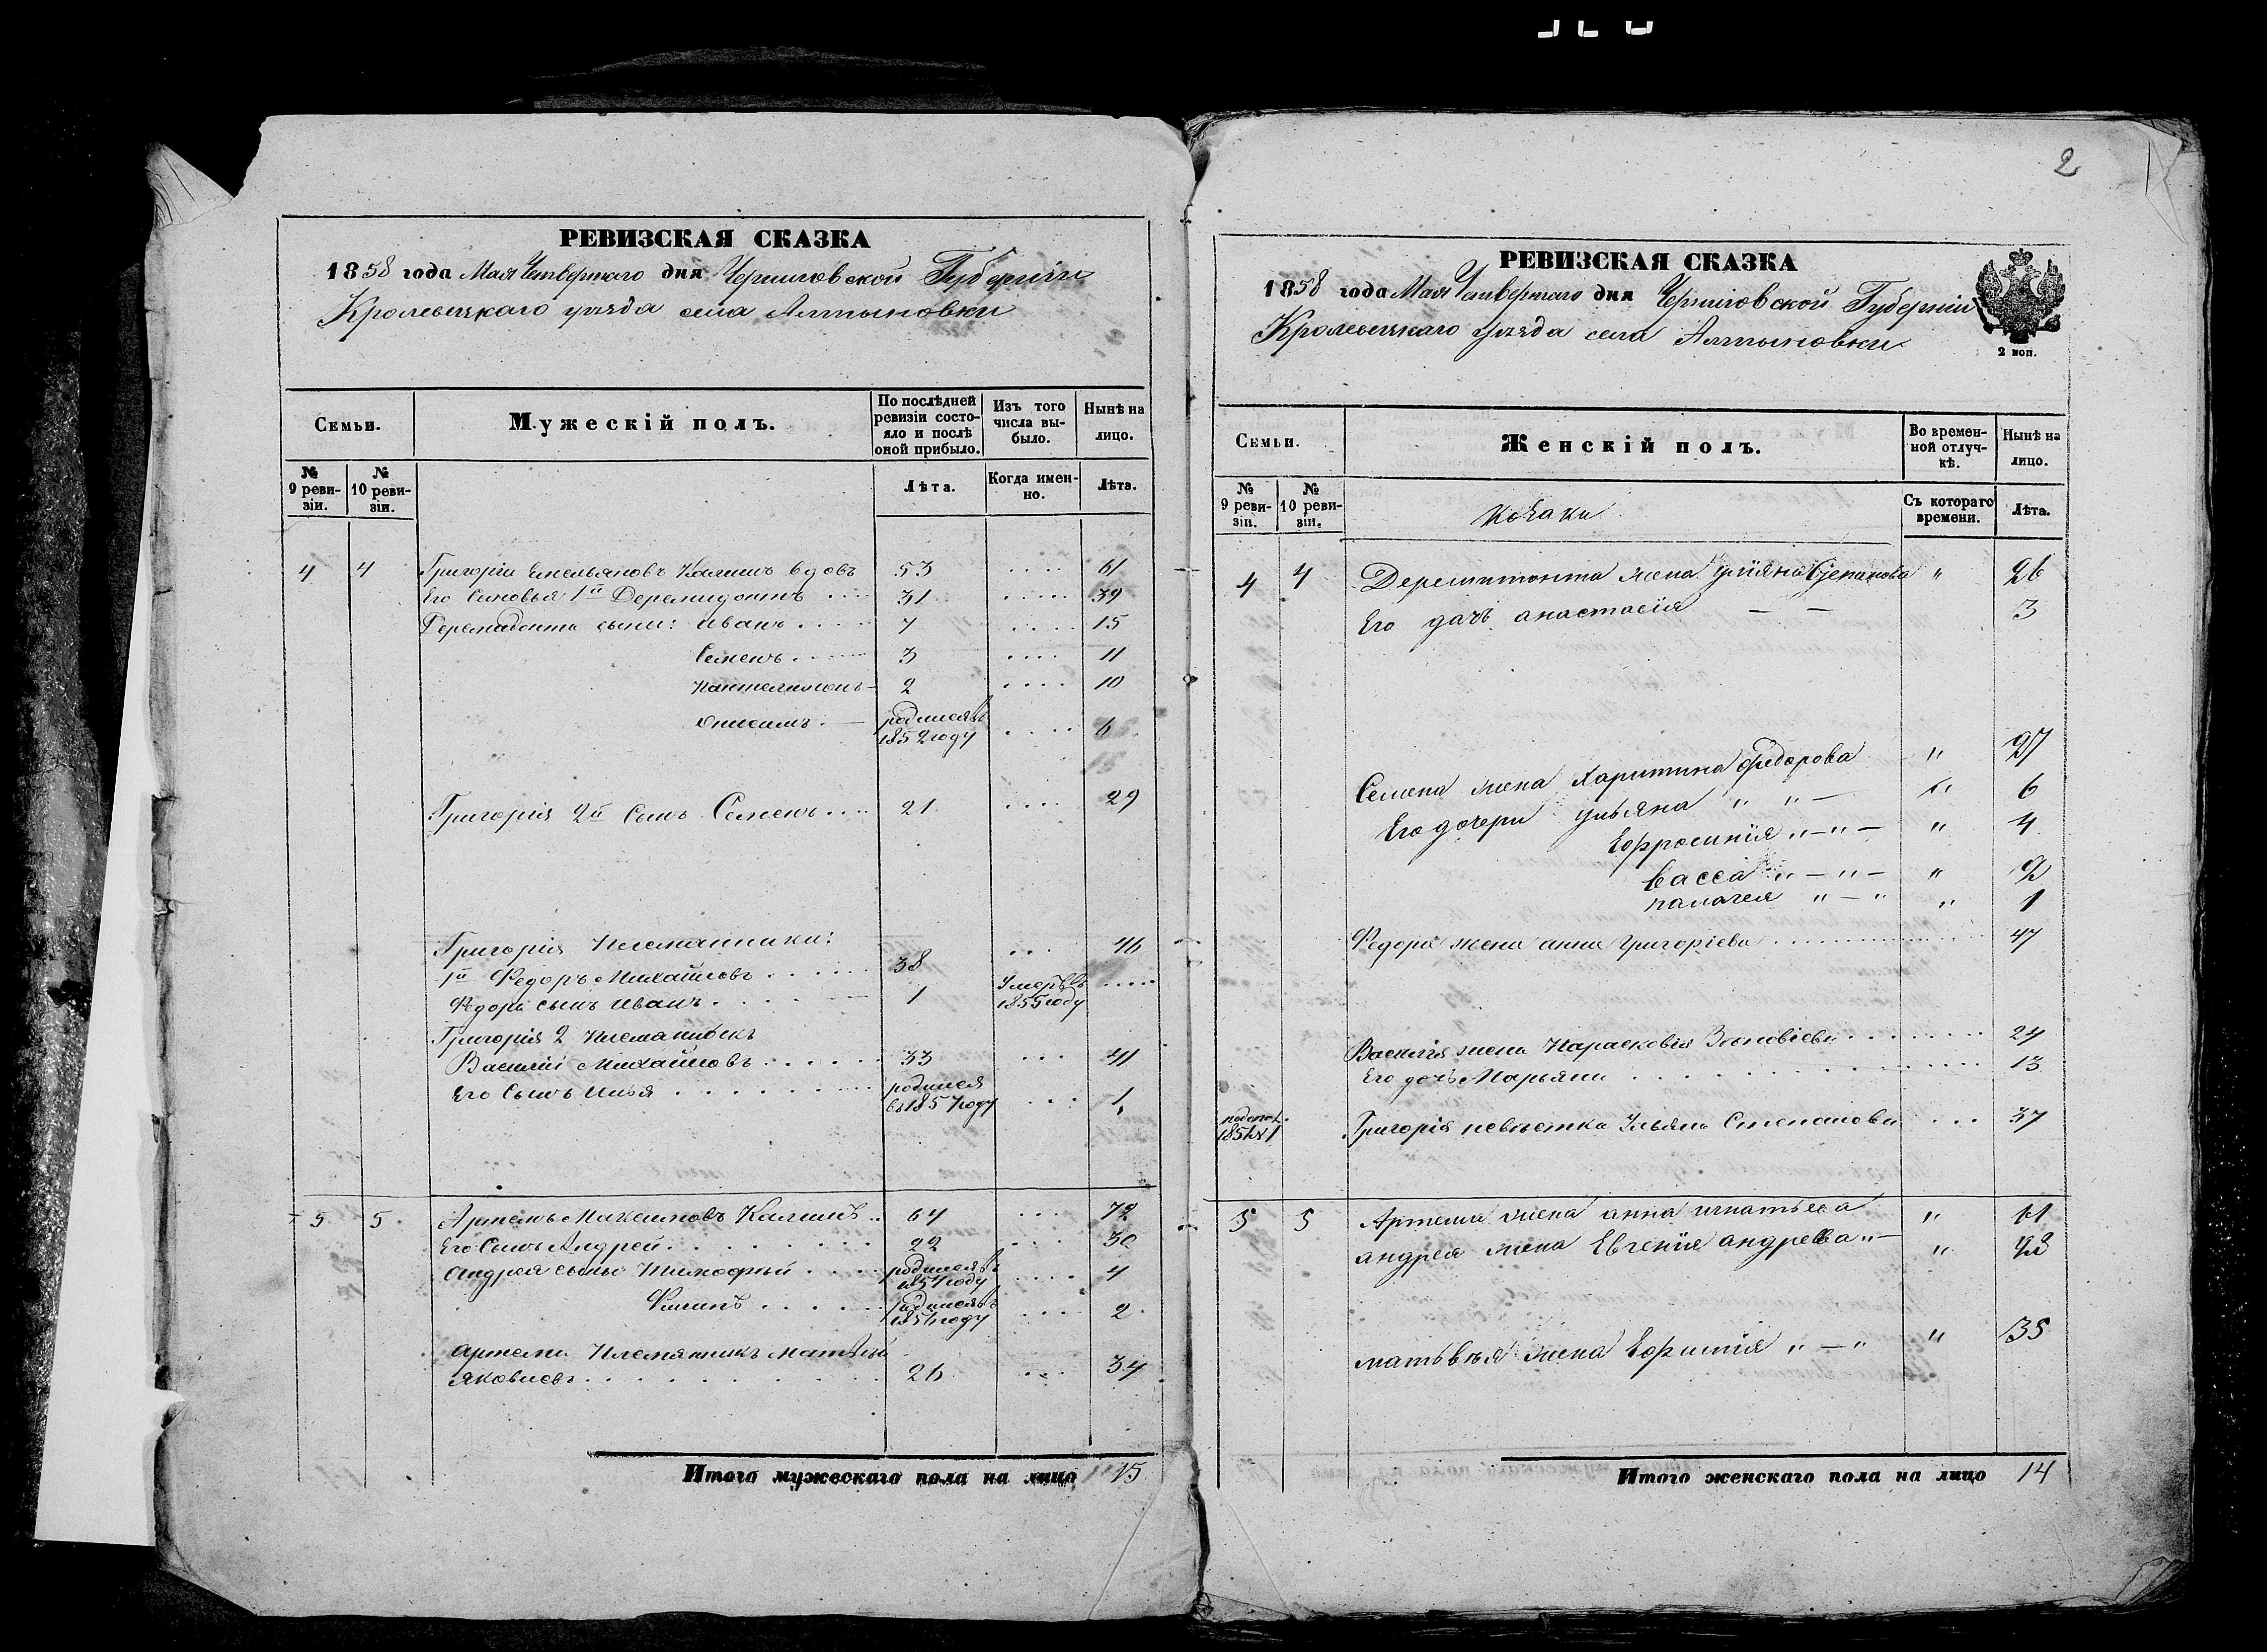 2
РЕВИЗСКАЯ СКАЗКА
1858 года Мая Четвертаго дня Черниговской Губернии
Кролевецкаго уезда села Алтыновки
Семьи.
Мужескій полъ.
По послѣдней ревизіи состояло и послѣ оной прибыло.
Изъ того числа выбыло.
Нынѣ на лицо.
№ 9 ревизіи.
№ 10 ревизіи.
Лѣта.
Когда именно.
Лѣта.
4 4 Григорий Емельяновъ вдовъ 53 .... 61
Его Сыновья 1й .... 31 ..... 39
сыны: Иванъ .... 7 .... 15
Семенъ ..... 3 .... 11
Пантелимонъ — 2 .... 10
Онисимъ — родился въ 1852 году .... 6
Григорія 2й Сынъ Семенъ .... 21 .... 29
Григорія Племянники:
1й Федоръ Михайловъ ..... 38 ... 46
Федора сынъ Иванъ ..... 1 Умеръ въ 1855 году .....
Григорія 2 Племянникъ
Василий Михайловъ ..... 33 ... 41
Его Сынъ Илья ..... родился въ 1857 году ... 1
5 5 Артемъ Максимовъ .. 64 ... 72
Его Сынъ Андрей ..... 22 ... 30
Андрея сыны Тимофѣй .... родился въ 1854 году .... 4
Филипъ ..... родился въ 1856 году .... 2
Артема Племянникъ Матвѣй
Яковлевъ ..... 26 ... 34
Итого мужескаго пола на лицо 15
РЕВИЗСКАЯ СКАЗКА
1858 года Мая Четвертаго дня Черниговской Губерніи
Кролевецкаго уезда села Алтыновки
2 коп.
Семьи.
Женскій полъ.
Во временной отлучкѣ.
Нынѣ на лицо.
№ 9 ревизіи.
№ 10 ревизіи.
Козаки
Съ котораго времени.
Лѣта.
4 4 жена Степанова " 26
Его дочь анастасія — — 3
Семена жена Харитина Федорова " 27
Его дочери Ульяна " " — " 6
Ефросинія " — " — " 4
Васса " — " — " 2
палагея " — " " 1
Федора жена анна Григоріева ..... 47
Василія жена Парасковія Зеновіева ..... 24
Его дочь Марьяна ..... 13
Григорія невѣстка Ульяна Степанова ... 37
5 5 Артема жена анна игнатьева " 61
андрея жена Евгенія андреева " — "
матьвѣя жена " — " " 35
Итого женскаго пола на лицо 14